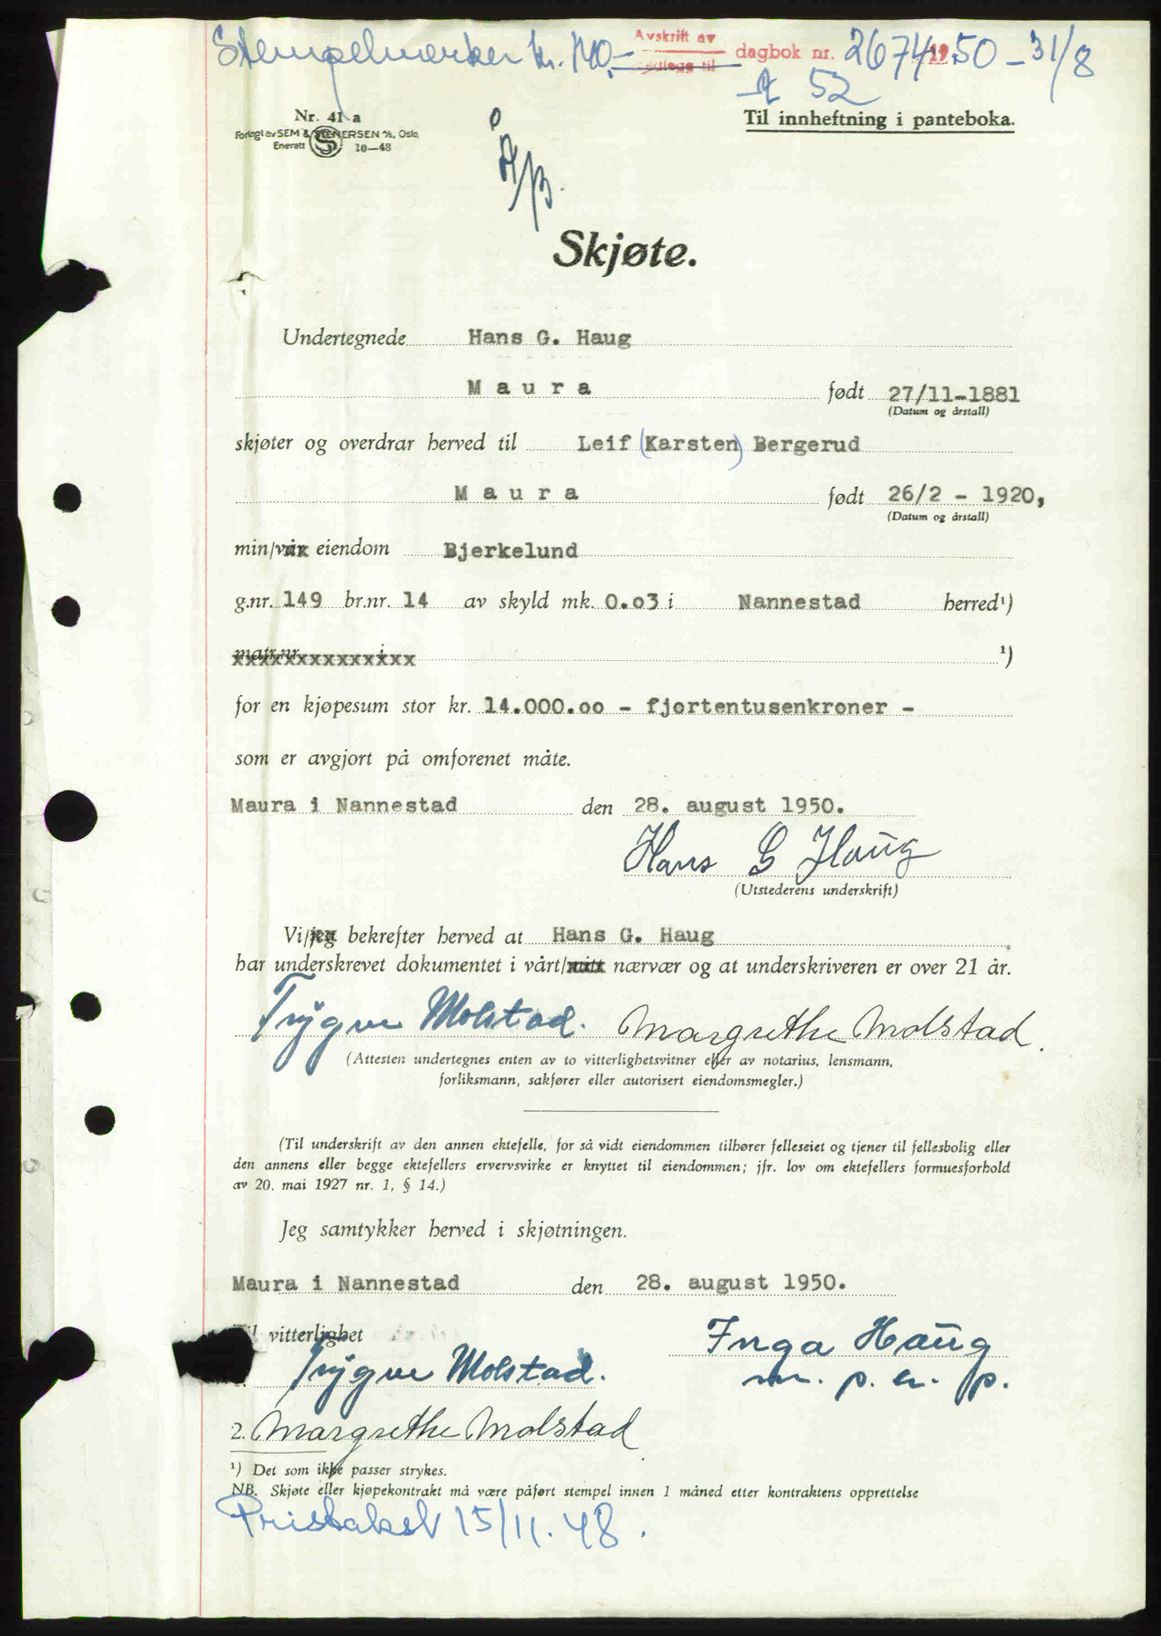 Stempelmerker kr. 140,-
Avskrift av
dagbok nr. 2674 1950 - 31/8
52
Nr. 41 a
Til innheftning i panteboka.
Forlagt av SEM & STENERSEN A/S, Oslo.
Enerett S 10—48
Skjøte.
Undertegnede Hans G. Haug
Maura født 27/11-1881
(Datum og årstall)
skjøter og overdrar herved til Leif (Karsten) Bergerud
Maura født 26/2 - 1920,
(Datum og årstall)
min/vår eiendom Bjerkelund
g.nr. 149 br.nr. 14 av skyld mk. 0.o3 i Nannestad herred¹)
matr.nr. i ¹)
for en kjøpesum stor kr. 14.000.oo - fjortentusenkroner -
som er avgjort på omforenet måte.
Maura i Nannestad den 28. august 1950.
Hans G Haug
(Utstederens underskrift)
Vi/jeg bekrefter herved at Hans G. Haug
har underskrevet dokumentet i vårt/mitt nærvær og at underskriveren er over 21 år.
Trygve Molstad. Margrethe Molstad.
(Attesten undertegnes enten av to vitterlighetsvitner eller av notarius, lensmann,
forliksmann, sakfører eller autorisert eiendomsmegler.)
(Til underskrift av den annen ektefelle, for så vidt eiendommen tilhører felleseiet og tjener til fellesbolig eller
den annens eller begge ektefellers ervervsvirke er knyttet til eiendommen; jfr. lov om ektefellers formuesforhold
av 20. mai 1927 nr. 1, § 14.)
Jeg samtykker herved i skjøtningen.
Maura i Nannestad den 28. august 1950.
Til vitterlighet
Inga Haug
Trygve Molstad.
m. p. a. p.
2. Margrethe Molstad
¹) Det som ikke passer strykes.
NB. Skjøte eller kjøpekontrakt må være påført stempel innen 1 måned etter kontraktens opprettelse
Pristakst 15/11. 48.